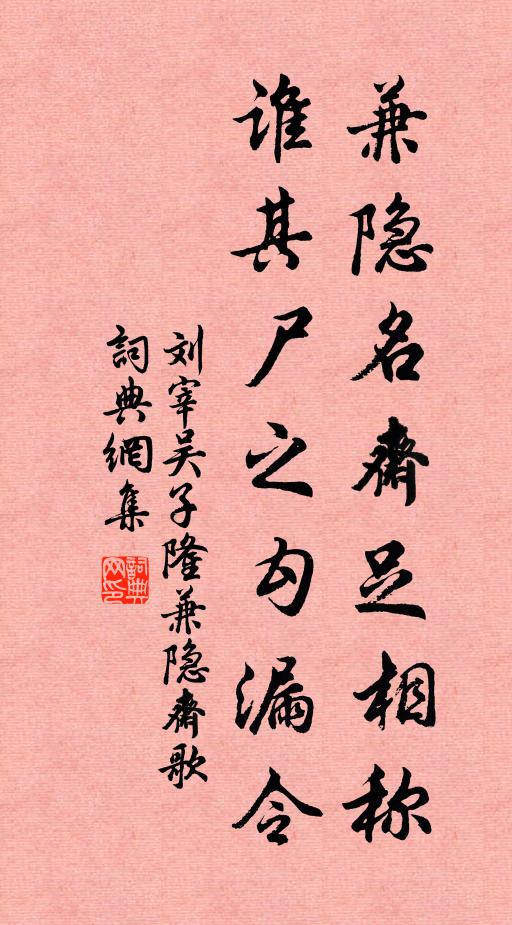 兼隐名斋足相称
谁其尸之勾漏令
刘宰吴子隆兼隐斋歌
詞典網集
詞典网印